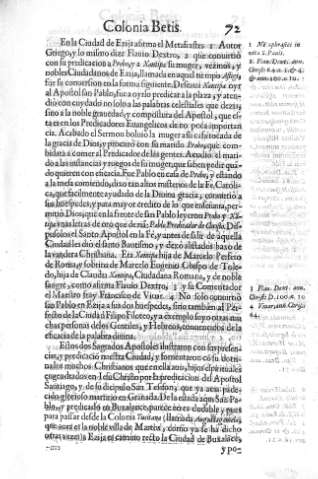 Colonia Betis. 72
En la Ciudad de Ezija afirma el Metafrastes 1 Autor
Griego, y lo mismo dize Flauio Dextro, 2 que conuirtiò
con su predicacion a Probo, y a Xantipa su muger, vezinos, y
nobles Ciudadanos de Ezija, llamada en aquel tiempo
fue su conuersion en la forma siguiente. Desseaua Xantipa oyr
al Apostol san Pablo, fue a oyrlo predicar a la plaza, y aten-
diò con cuydado no solo a las palabras celestiales que dezia,
sino a la noble grauedad, y compostura del Apostol, que es-
ta en los Predicadores Euangelicos es de no poca importan-
cia. Acabado el Sermon boluiò la muger a su casa tocada de
la gracia de Dios, y procurò con su marido Probo, que com-
bidara a comer al Predicador de las gentes. Acudiò el mari-
do a las instancias y ruegos de su muger, que saben pedir quã-
do quieren con eficacia. Fue Pablo en casa de Probo, y estando
a la mesa comiendo, dixo tan altos misterios de la Fè Catoli-
ca, que facilmente ayudado de la Diuina gracia, conuirtiò a
sus huespedes, y para mayor credito de lo que enseñaua, per-
mitiò Dios, que en la frente de san Pablo leyeron Probo y Xã-
tipa vnas letras de oro que dezian: Pablo Predicador de Christo. Dis-
pusolos el Santo Apostol en la Fè, y antes de salir de aquella
Ciudad les diò el santo Bautismo, y dexò alistados baxo de
la vandera Christiana. Era Xantipa hija de Marcelo Perfecto
de Roma, y sobrina de Marcelo Eugenio Obispo de Tole-
do, hija de Claudia Xantipa, Ciudadana Romana, y de noble
sangre, como afirma Flauio Dextro, 3 y su Comentador
el Maestro fray Francisco de Viuar. 4 No solo conuirtiò
san Pablo en Ezija a sus dos huespedes, sino tambien al Per-
fecto de la Ciudad Filipo Filoteo, y a exemplo suyo otras mu-
chas personas de los Gentiles, y Hebreos, conuencidos de la
eficacia de la palabra diuina.
Estos dos Sagrados Apostoles ilustraron con su presen-
cia, y predicacion nuestra Ciudad, y fomentaron con su dotri-
na los muchos Christianos que en ella auia, hijos espirituales
engendrados en Iesu Christo por la predicacion del Apostol
Santiago, y de su dicipulo San Tesifon, que ya auia pade-
cido glorioso martirio en Granada. De la estada aqui San Pa-
blo, y predicado en Buxalance, parece no es dudable, pues
para passar desde la Colonia
que aora es la noble villa de Martos, como ya se ha dicho
otras vezes) a Ezija es camino recto la Ciudad de Buxalance,
y po-
1 Metaphrastes in
vita S. Pauli.
2 Flau. Dext. ann.
Christi 64.
3 Flau. Dext. ann.
Christi
4 Viuar, ann. Christi
64.